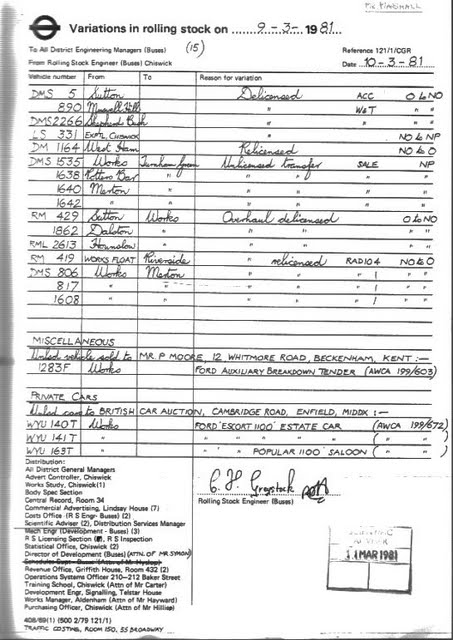 MR MARSHALL
Variations in rolling stock on 9-3-1981
To All District Engineering Managers (Buses) (15) Reference 121/1/CGR
From Rolling Stock Engineer (Buses) Chiswick Date 10-3-81
Vehicle number From To Reason for variation
DMS 5 Sutton Delicensed ACC O to NO
890 Muswell Hill " W&T " "
DMS 2266 Shepherds Bush " " " "
LS 331 EXPTL CHISWICK " NO to NP
DM 1164 West Ham Relicensed NO to O
DMS 1535 Works Turnham Green Unlicensed transfer SALE NP
1638 Potters Bar " " " " "
1640 Merton " " " " "
1642 " " " " " "
RM 429 Sutton Works Overhaul delicensed O to NO
1862 Dalston " " " " "
RML 2613 Hounslow " " " " "
RM 419 WORKS FLOAT Riverside " relicensed RAD104 NO to O
DMS 806 Works Merton " " " 1 " "
817 " " " " " 1 " "
1608 " " " " " 1 " "
MISCELLANEOUS
Unlicd vehicle sold to MR. P MOORE, 12 WHITMORE ROAD, BECKENHAM, KENT :—
1283F Works FORD AUXILIARY BREAKDOWN TENDER (AWCA 199/603)
PRIVATE CARS
Unlicd cars to BRITISH CAR AUCTION, CAMBRIDGE ROAD, ENFIELD, MIDDX :—
WYU 140T Works FORD 'ESCORT 1100' ESTATE CAR (AWCA 199/672)
WYU 141T " " " " " " ( " " )
WYU 163T " " " POPULAR 1100' SALOON ( " " )
Distribution:
All District General Managers
Advert Controller, Chiswick
Works Study, Chiswick(1)
Body Spec Section
Central Record, Room 34
Commercial Advertising, Lindsay House (7)
Costs Office (R S Engr- Buses) (2)
Scientific Adviser (2), Distribution Services Manager
Mech Engr (Development - Buses) (3)
R S Licensing Section, R S Inspection
Statistical Office, Chiswick
Director of Development (Buses) (ATTN OF MR SYMON)
Schedules Supt - Buses (Attn of Mr Hyslop)
Revenue Office, Griffith House, Room 432 (2)
Operations Systems Officer 210—212 Baker Street
Training School, Chiswick (Attn of Mr Carter)
Development Engr, Signalling, Telstar House
Works Manager, Aldenham (Attn of Mr Hayward)
Purchasing Officer, Chiswick (Attn of Mr Hillier)
Rolling Stock Engineer (Buses)
11 MAR 1981
408/69(1) (500 2/79 121/1)
TRAFFIC COSTING, ROOM 150, 55 BROADWAY